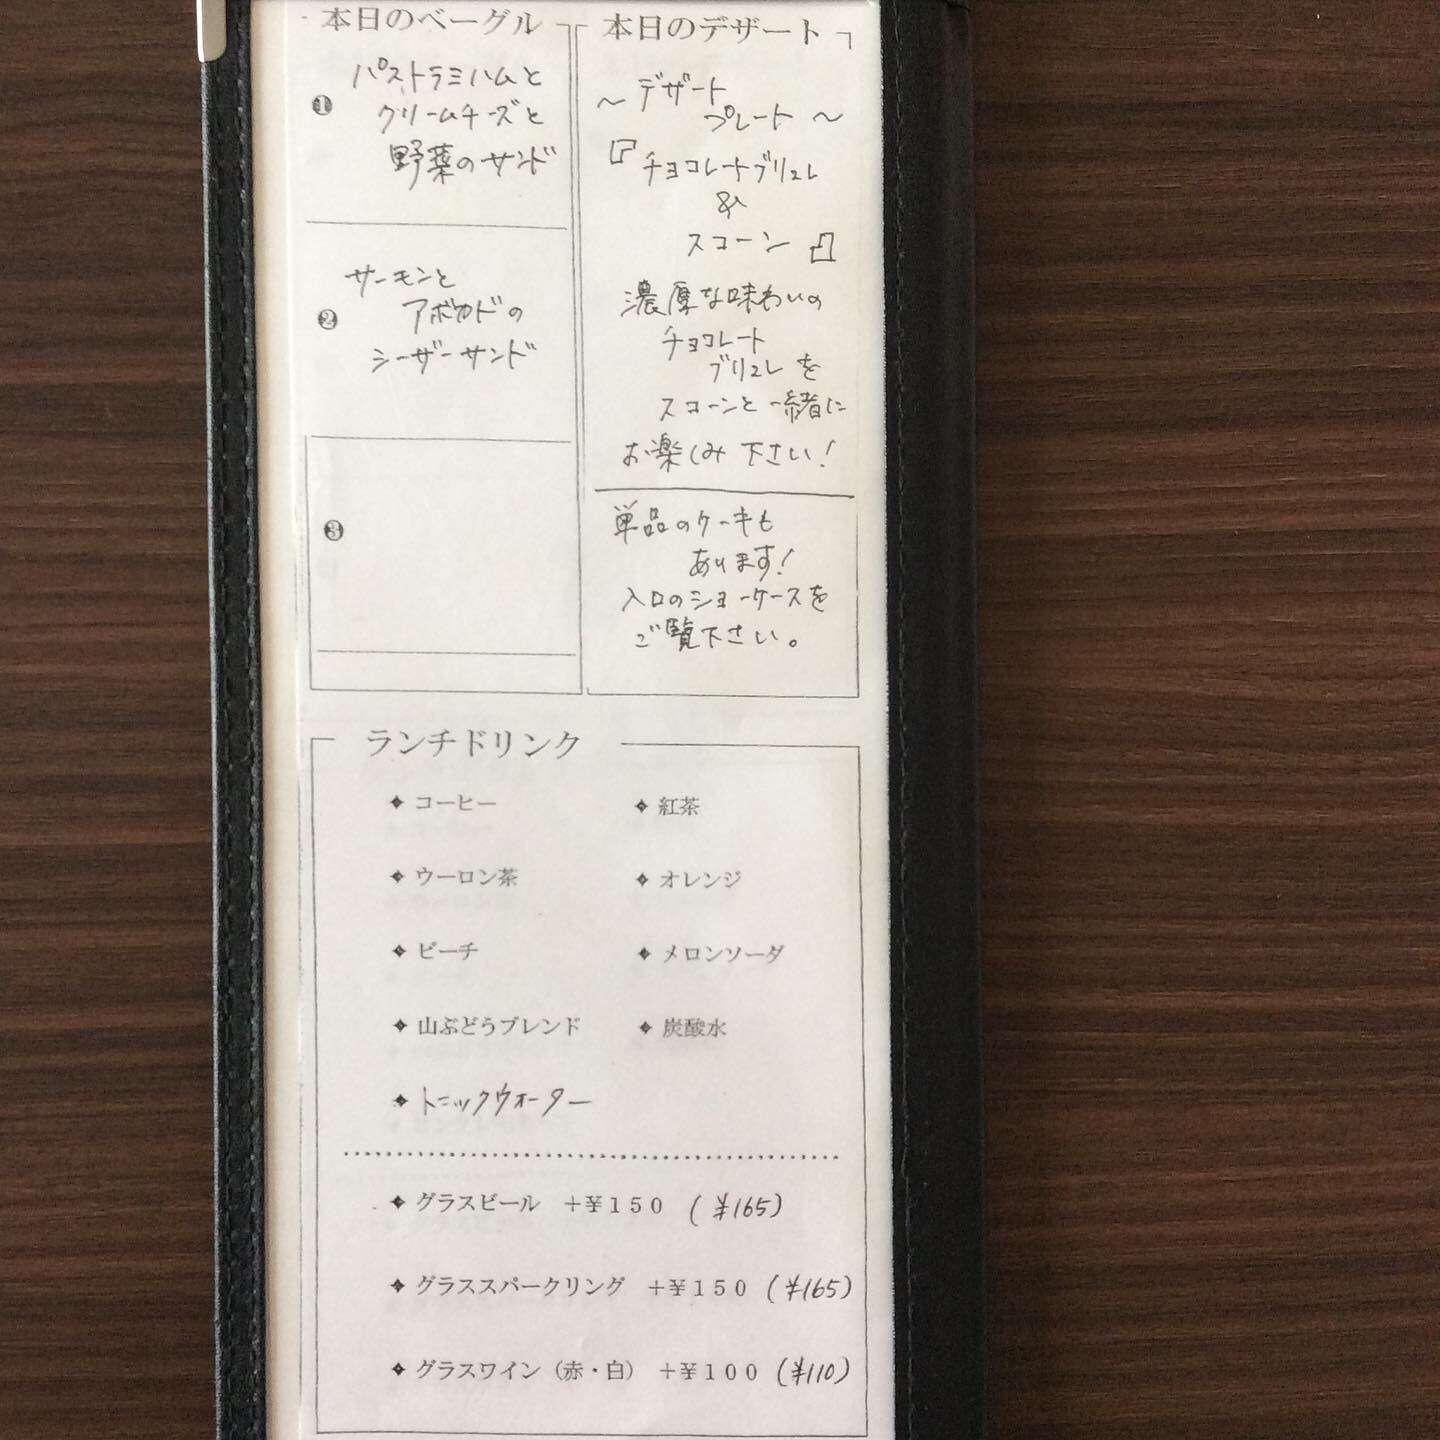 本日のベーグル
❶
パストラミハムと
クリームチーズと
野菜のサンド
❷
サーモンと
アボカドの
シーザーサンド
❸
本日のデザート
～デザート
プレート～
『チョコレートブリュレ
&
スコーン』
濃厚な味わいの
チョコレート
ブリュレを
スコーンと一緒に
お楽しみ下さい!
単品のケーキも
あります!
入口のショーケースを
ご覧下さい。
ランチドリンク
コーヒー
紅茶
ウーロン茶
オレンジ
ピーチ
メロンソーダ
山ぶどうブレンド
炭酸水
トニックウォーター
グラスビール +¥150 (¥165)
グラススパークリング +¥150 (¥165)
グラスワイン(赤・白) +¥100 (¥110)